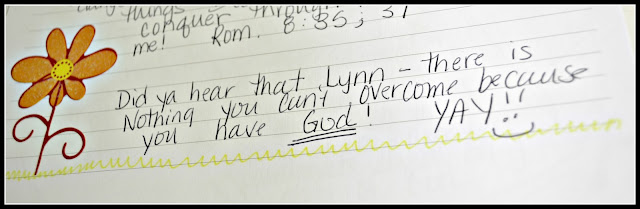 things
conquer through
me! Rom. 8:35; 37
Did ya hear that Lynn - there is
Nothing you can't overcome because
you have God! YAY!!